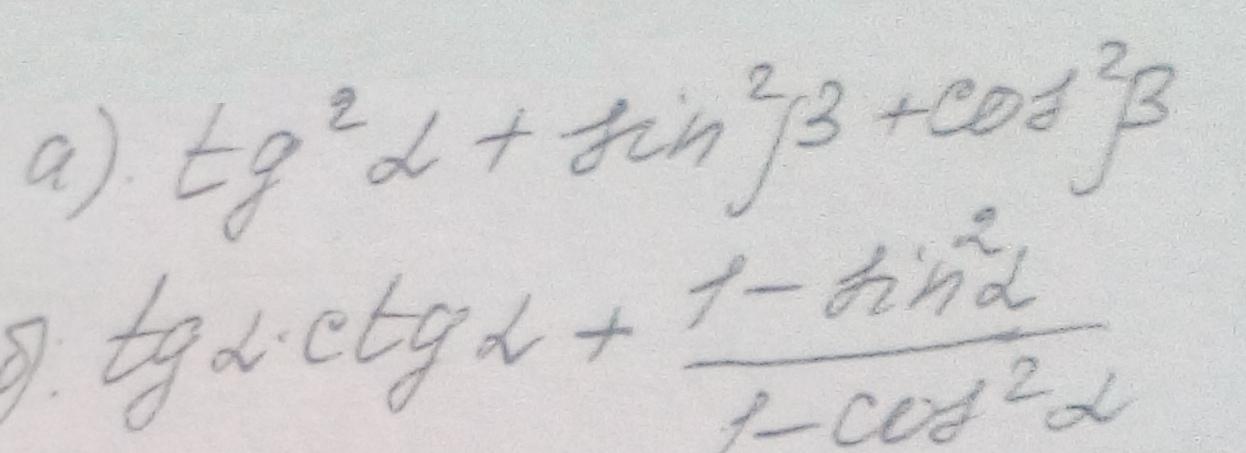 а). tg²α + sin²β + cos²β
б). tgα·ctgα + (1 - sin²α)/(1 - cos²α)